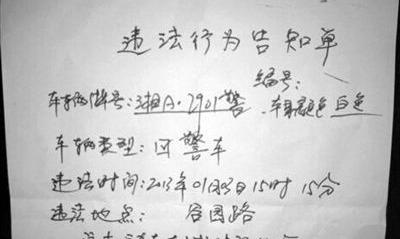 违法行为告知单
编号:
车辆牌号:湘A·2901警 车身颜色 白色
车辆类型: 警车
违法时间:2013年01月03日15时15分
违法地点: 谷园路